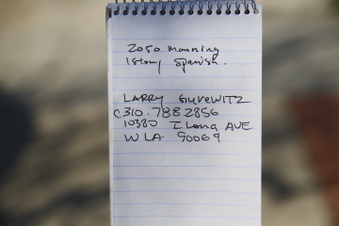 2050 Manning
1 Story Spanish.
LARRY GUREWITZ
C 310.788 2856
10380 ILona AVE
W LA 90064